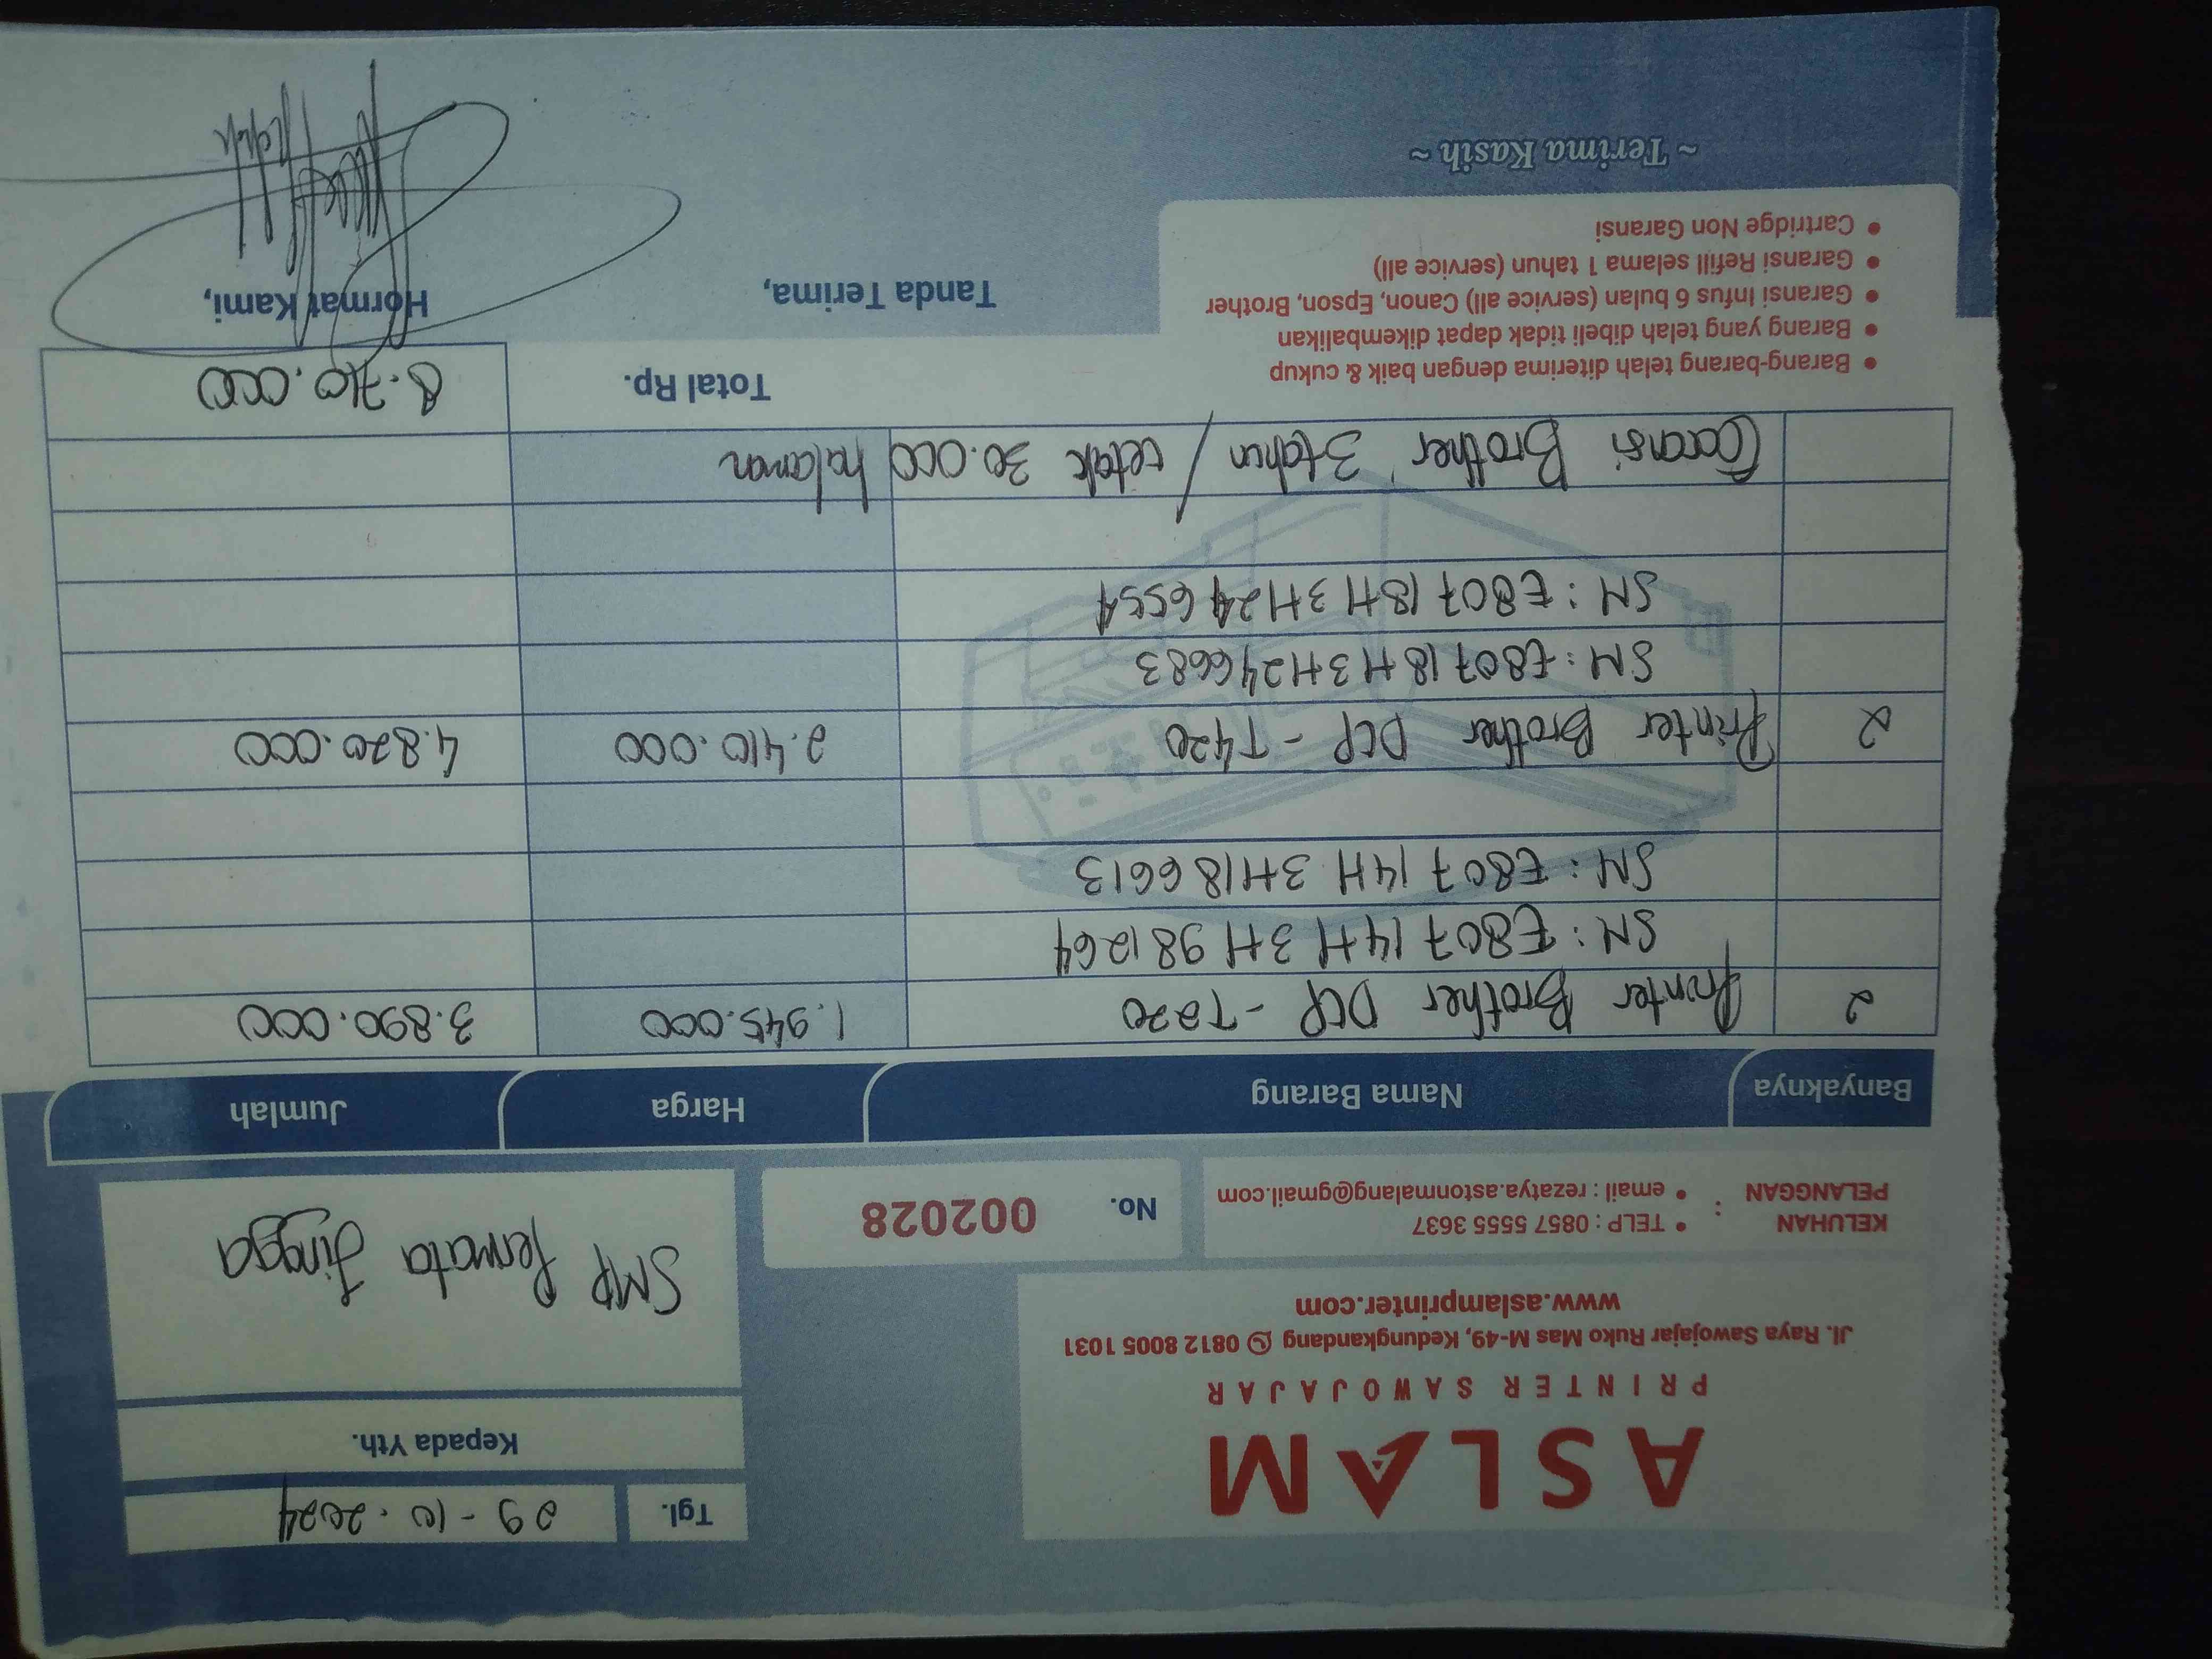 ASLAM
PRINTER SAWOJAJAR
Jl. Raya Sawojajar Ruko Mas M-49, Kedungkandang 0812 8005 1031
www.aslamprinter.com
Tgl. 29-10.2024
Kepada Yth.
SMP Permata Jingga
KELUHAN PELANGGAN :
• TELP : 0857 5555 3637
• email : rezatya.astonmalang@gmail.com
No. 002028
Banyaknya Nama Barang Harga Jumlah
2 Printer Brother DCP - T220 1.945.000 3.890.000
SN : E80714H3H981264
SN : E80714H3H186613
2 Printer Brother DCP - T420 2.410.000 4.820.000
SN : E80718H3H246683
SN : E80718H3H246554
Garansi Brother 3 tahun / cetak 30.000 halaman
Total Rp. 8.710.000
• Barang-barang telah diterima dengan baik & cukup
• Barang yang telah dibeli tidak dapat dikembalikan
• Garansi Infus 6 bulan (service all) Canon, Epson, Brother
• Garansi Refill selama 1 tahun (service all)
• Cartridge Non Garansi
~ Terima Kasih ~
Tanda Terima,
Hormat Kami,